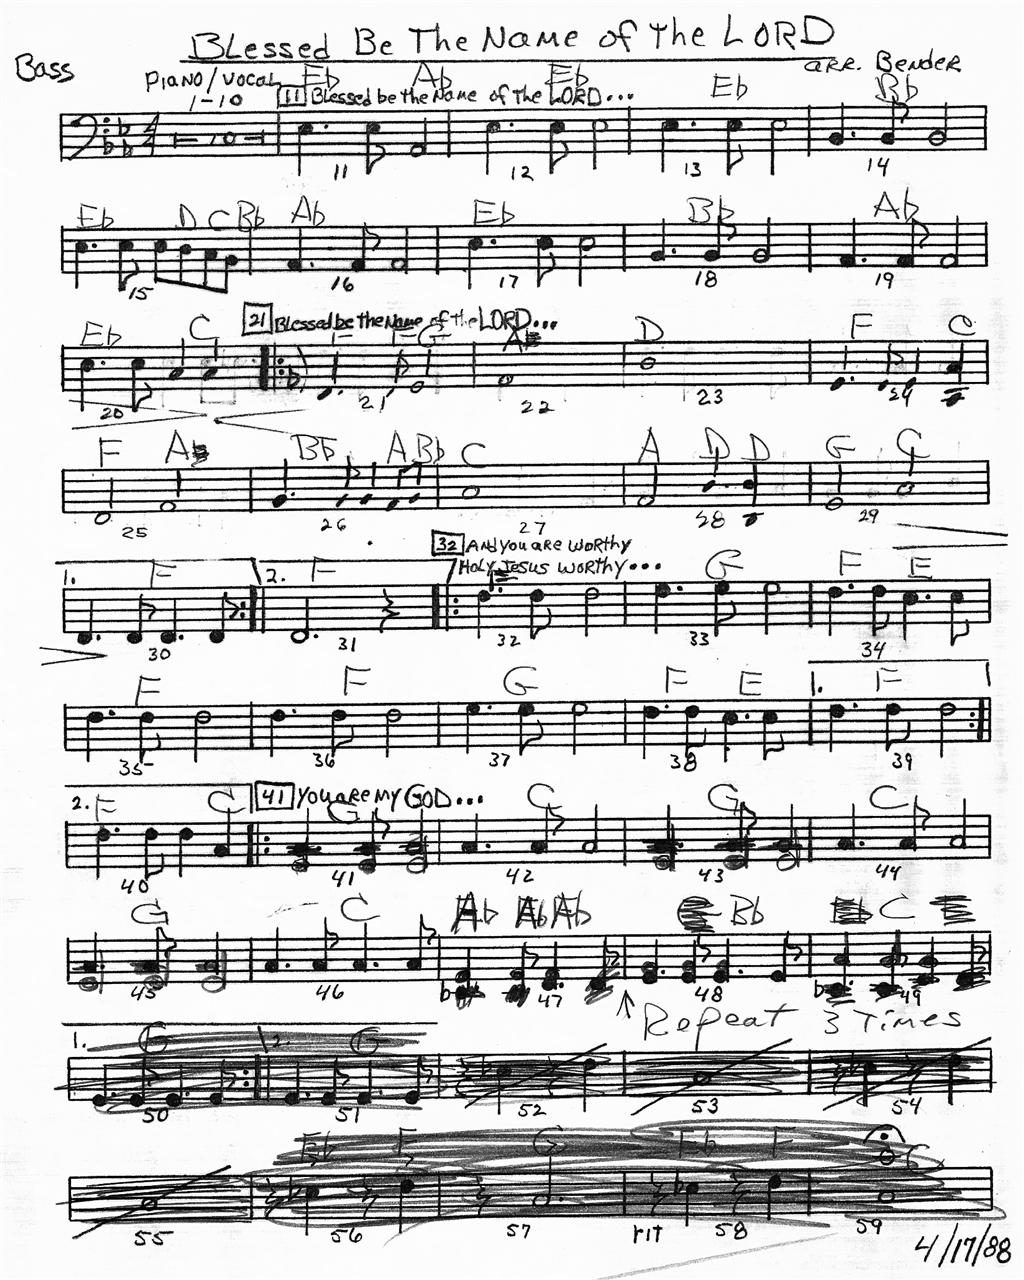 Blessed Be The Name of The LORD
Bass
arr. Bender
Piano/Vocal
1-10
Eb Ab Eb Eb Bb
11 Blessed be the Name of the LORD...
10
11 12 13 14
Eb D C Bb Ab Eb Bb Ab
15 16 17 18 19
21 Blessed be the Name of the LORD...
Eb C F F G A D F C
20 21 22 23 24
F A Bb A Bb C A D D G C
25 26 27 28 29
32 And you are worthy
Holy Jesus worthy...
1. F 2. F G F E
30 31 32 33 34
F F G F E 1. F
35 36 37 38 39
2. F C 41 You are my GOD... G C G C
40 41 42 43 44
G C Ab Ab Ab Bb Eb C
45 46 47 48 49
↑ Repeat 3 Times
1. G 2. G
50 51 52 53 54
Eb F G Eb F
55 56 57 rit 58 59
4/17/88